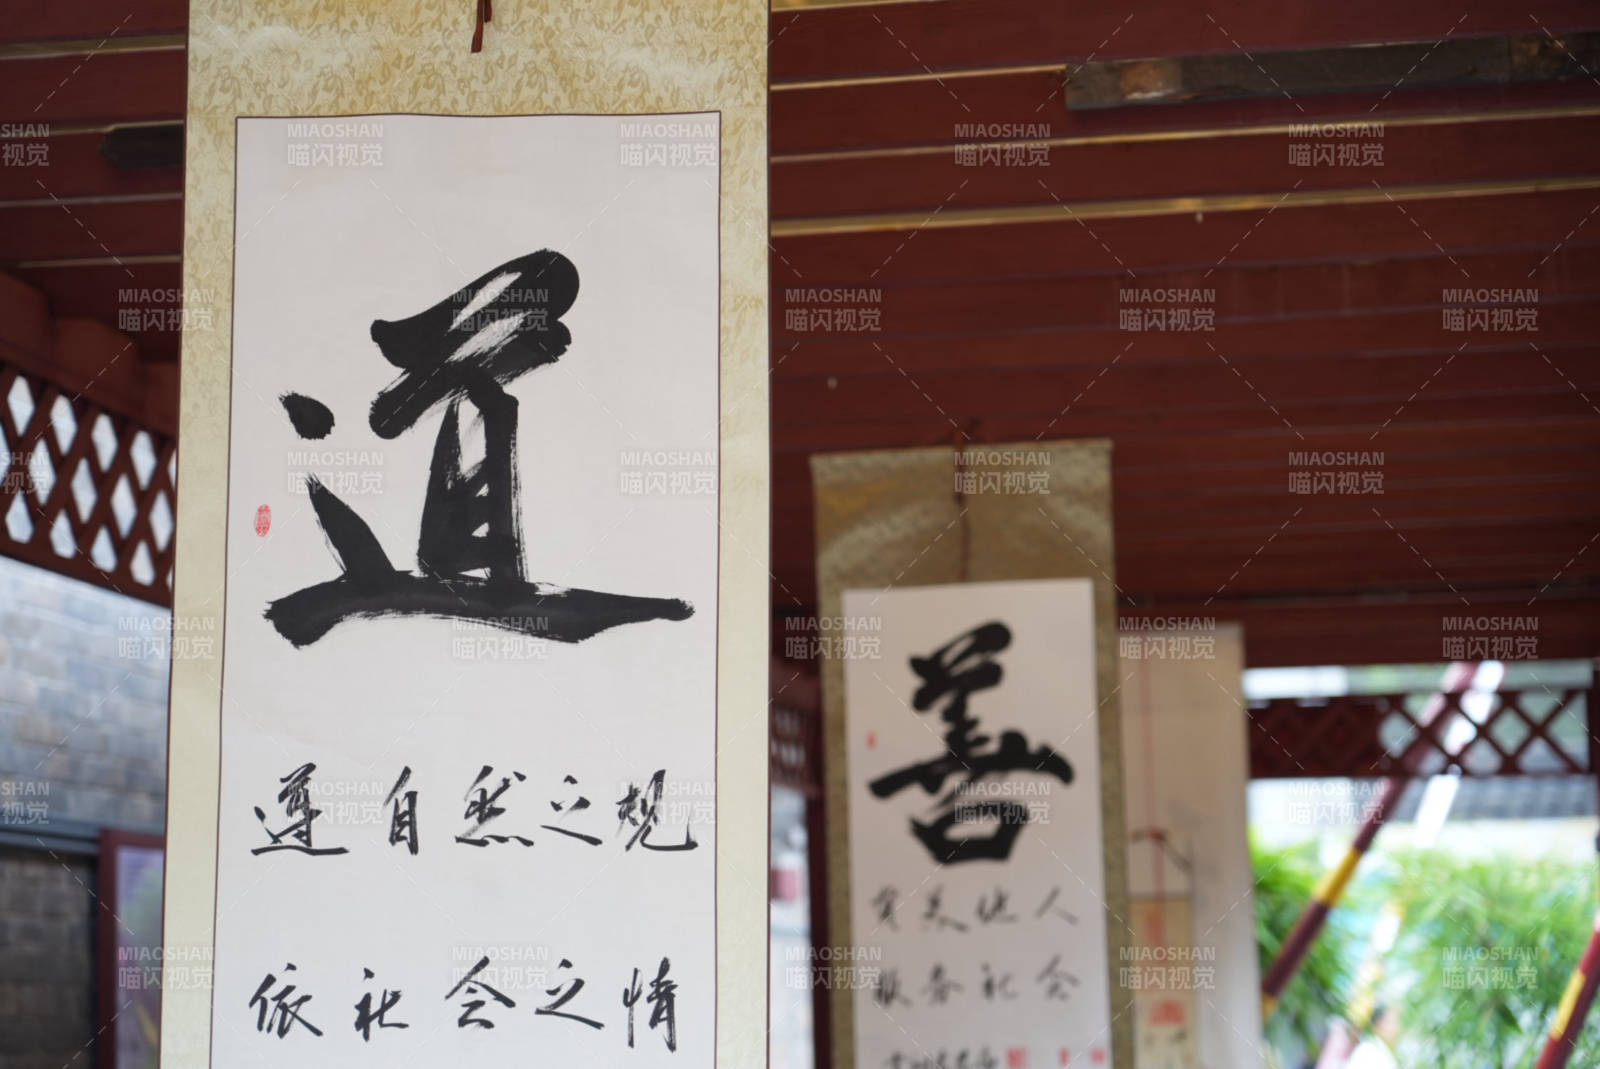 道
遵自然之规
依社会之情
善
完美他人
服务社会
MIAOSHAN
喵闪视觉